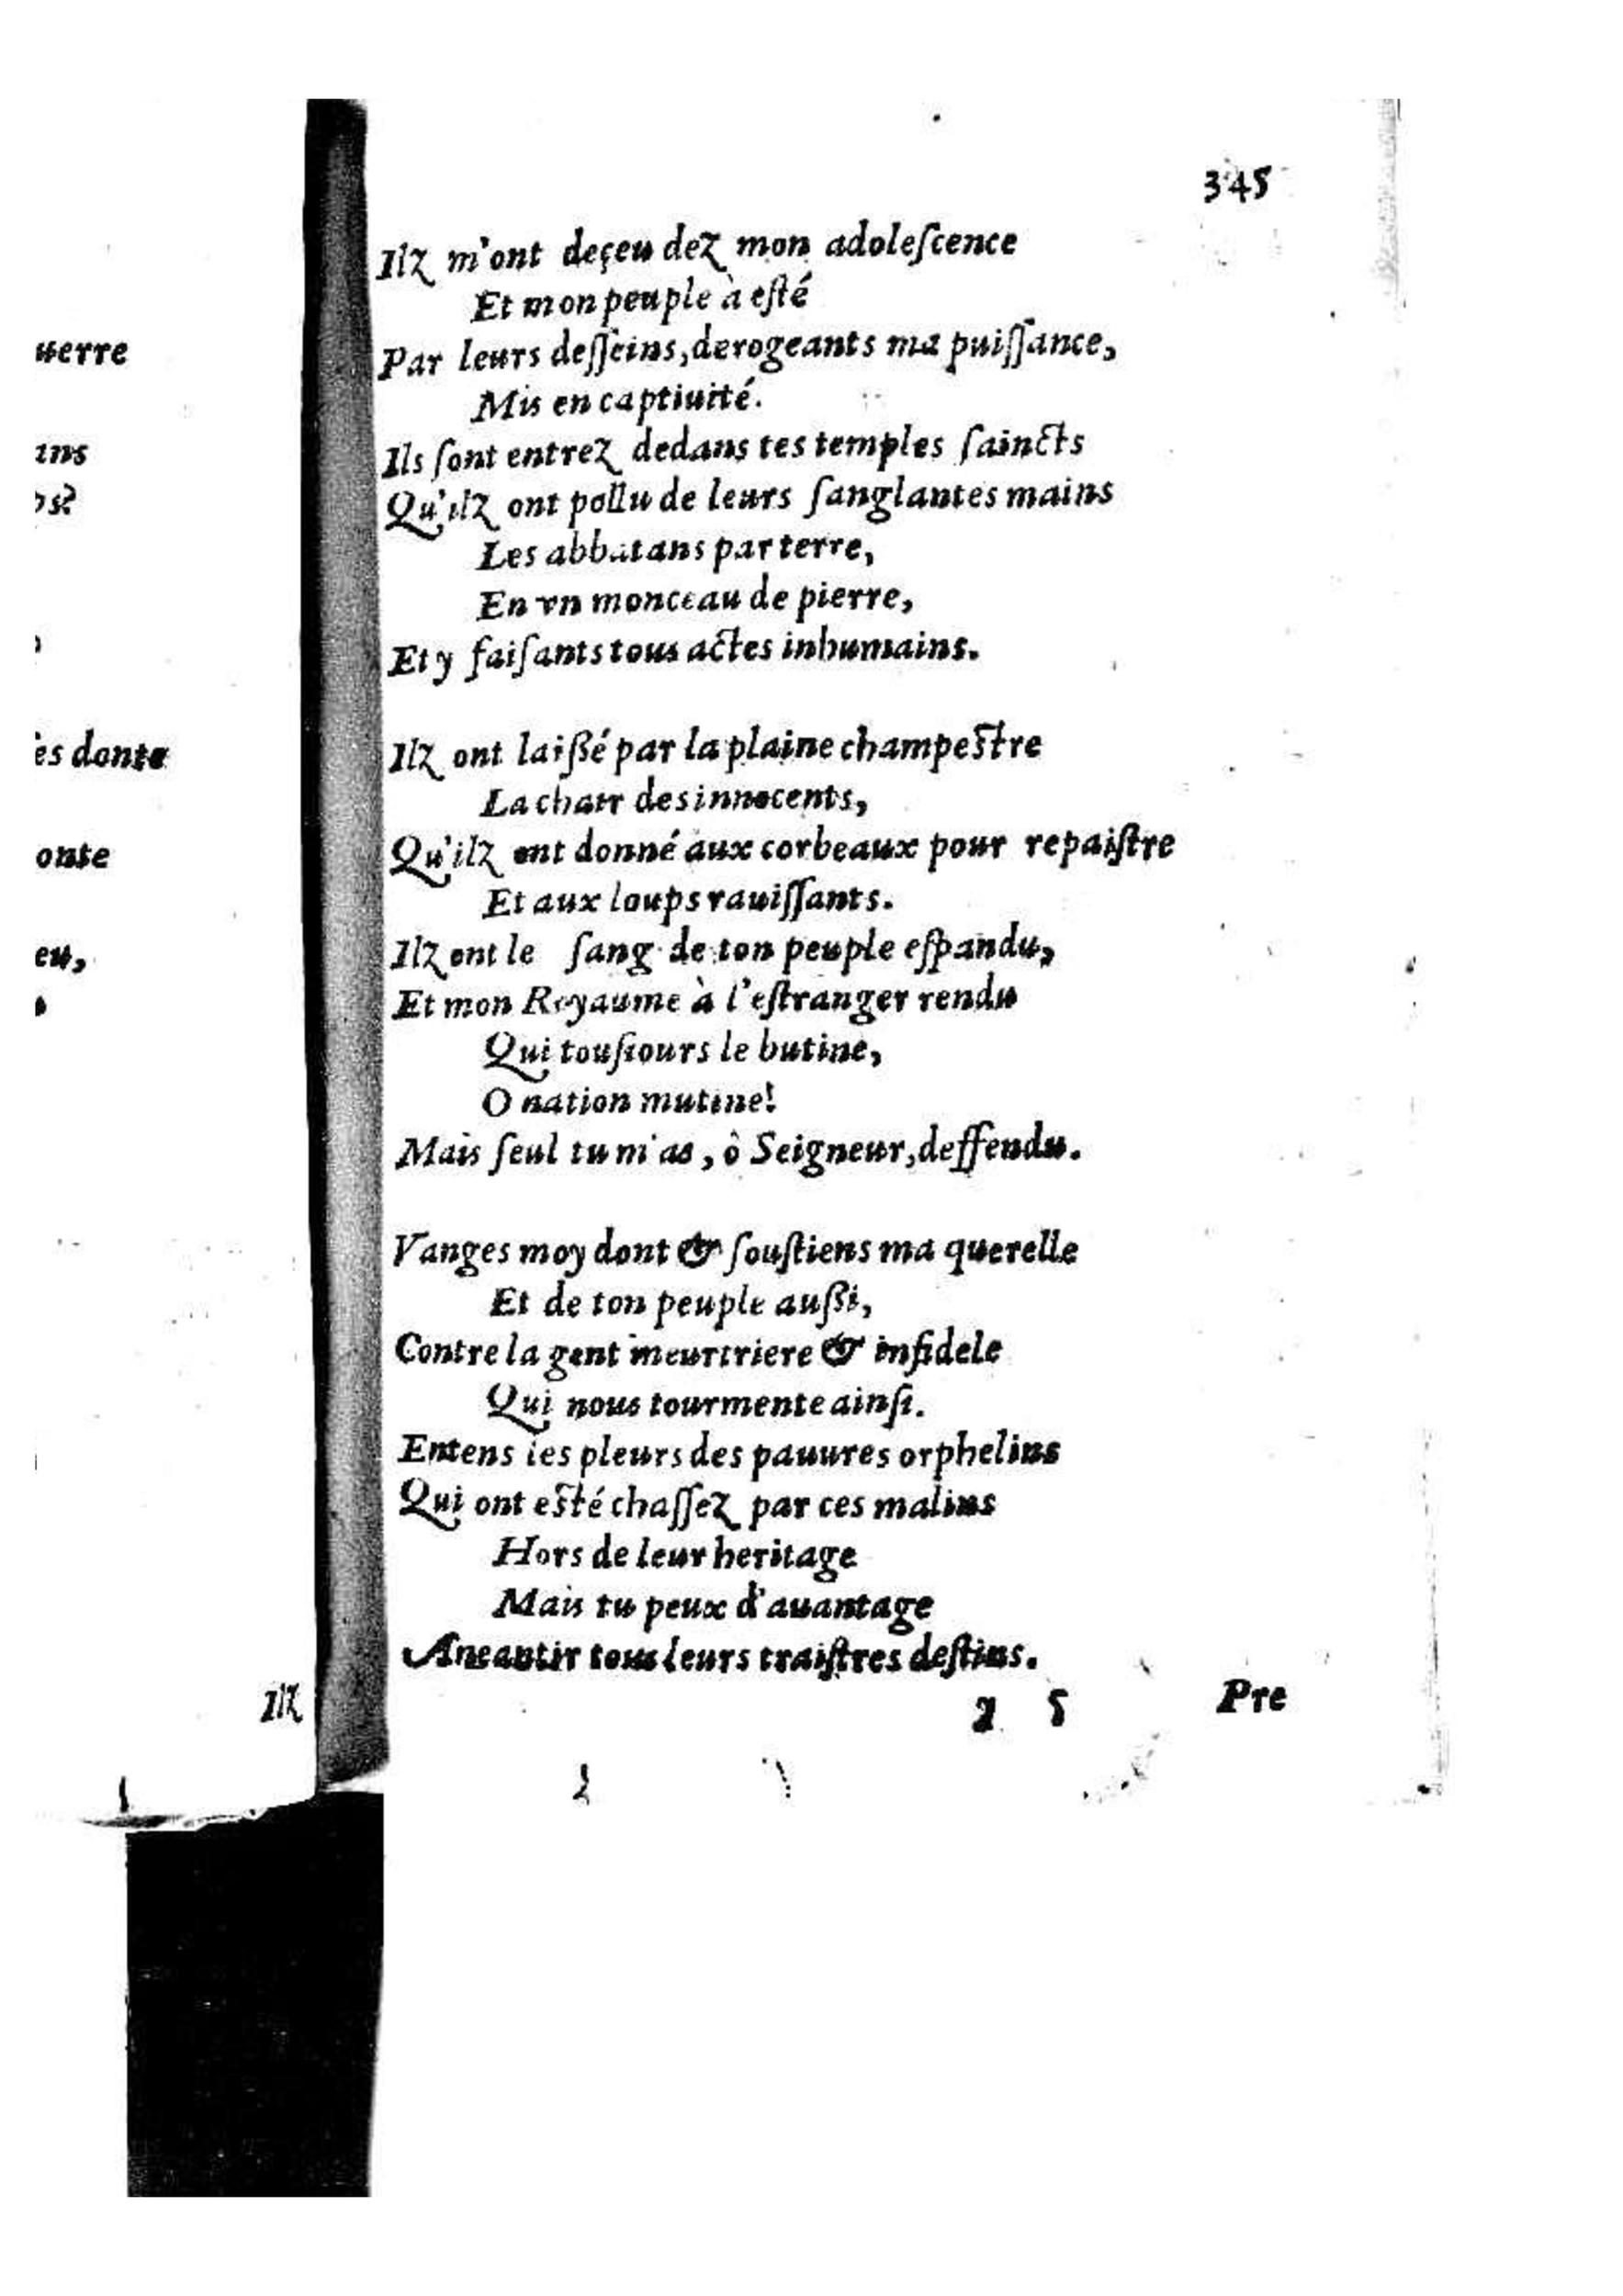 345
Ilz m'ont deçeu dez mon adoleſcence
Et mon peuple à eſté
Par leurs deſſeins, derogeants ma puiſſance,
Mis en captiuité.
Ils ſont entrez dedans tes temples ſaincts
Qu'ilz ont pollu de leurs ſanglantes mains
Les abbatans par terre,
En vn monceau de pierre,
Et y faiſants tous actes inhumains.
Ilz ont laißé par la plaine champeſtre
La chair des innocents,
Qu'ilz ont donné aux corbeaux pour repaiſtre
Et aux loups rauiſſants.
Ilz ont le ſang de ton peuple eſpandu,
Et mon Royaume à l'eſtranger rendu
Qui touſiours le butine,
O nation mutine!
Mais ſeul tu m'as, ô Seigneur, deffendu.
Vanges moy dont & ſouſtiens ma querelle
Et de ton peuple außi,
Contre la gent meurtriere & infidele
Qui nous tourmente ainſi.
Entens les pleurs des pauures orphelins
Qui ont eſté chaſſez par ces malins
Hors de leur heritage
Mais tu peux d'auantage
Aneantir tous leurs traiſtres deſtins.
5 Pre
uerre
ans
onte
eu,
Ilz